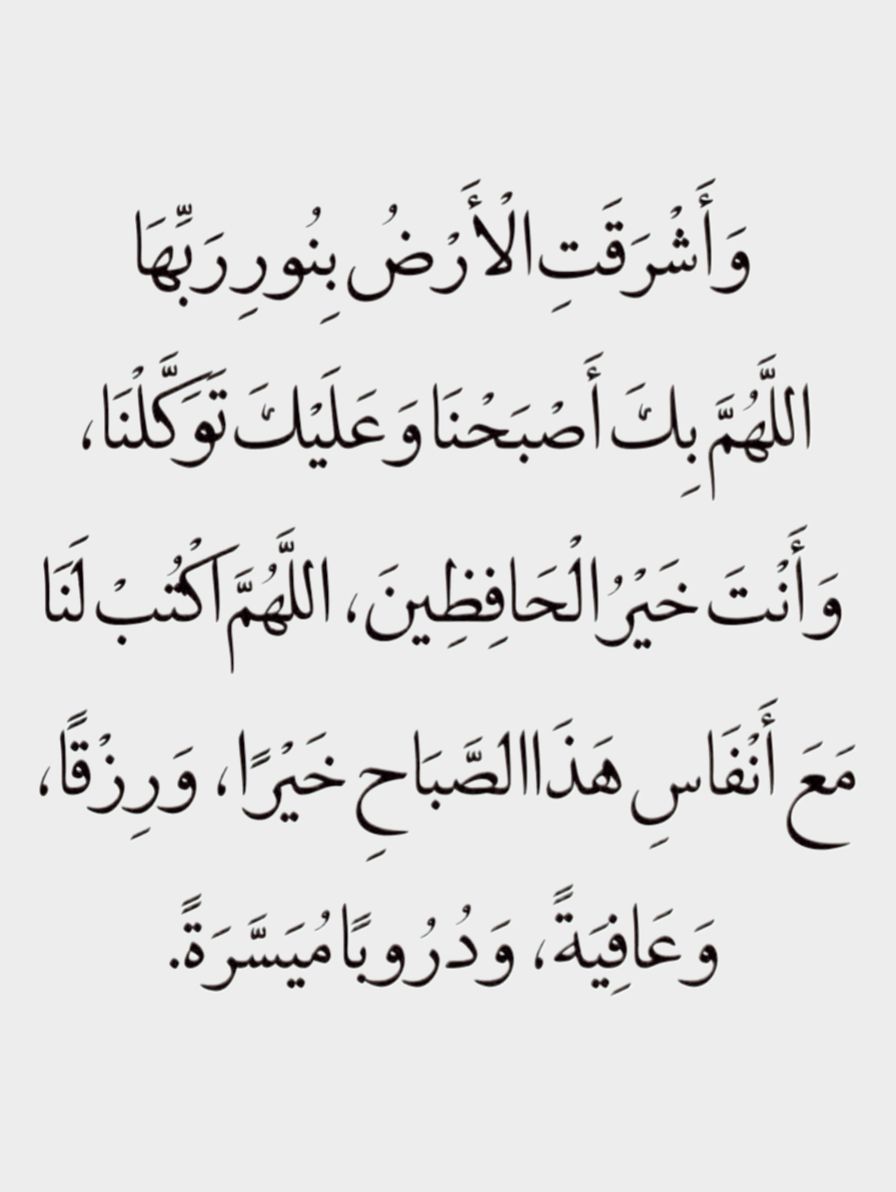 وَأَشْرَقَتِ الْأَرْضُ بِنُورِ رَبِّهَا
اللَّهُمَّ بِكَ أَصْبَحْنَا وَعَلَيْكَ تَوَكَّلْنَا،
وَأَنْتَ خَيْرُ الْحَافِظِينَ، اللَّهُمَّ اكْتُبْ لَنَا
مَعَ أَنْفَاسِ هَذَا الصَّبَاحِ خَيْرًا، وَرِزْقًا،
وَعَافِيَةً، وَدُرُوبًا مُيَسَّرَةً.